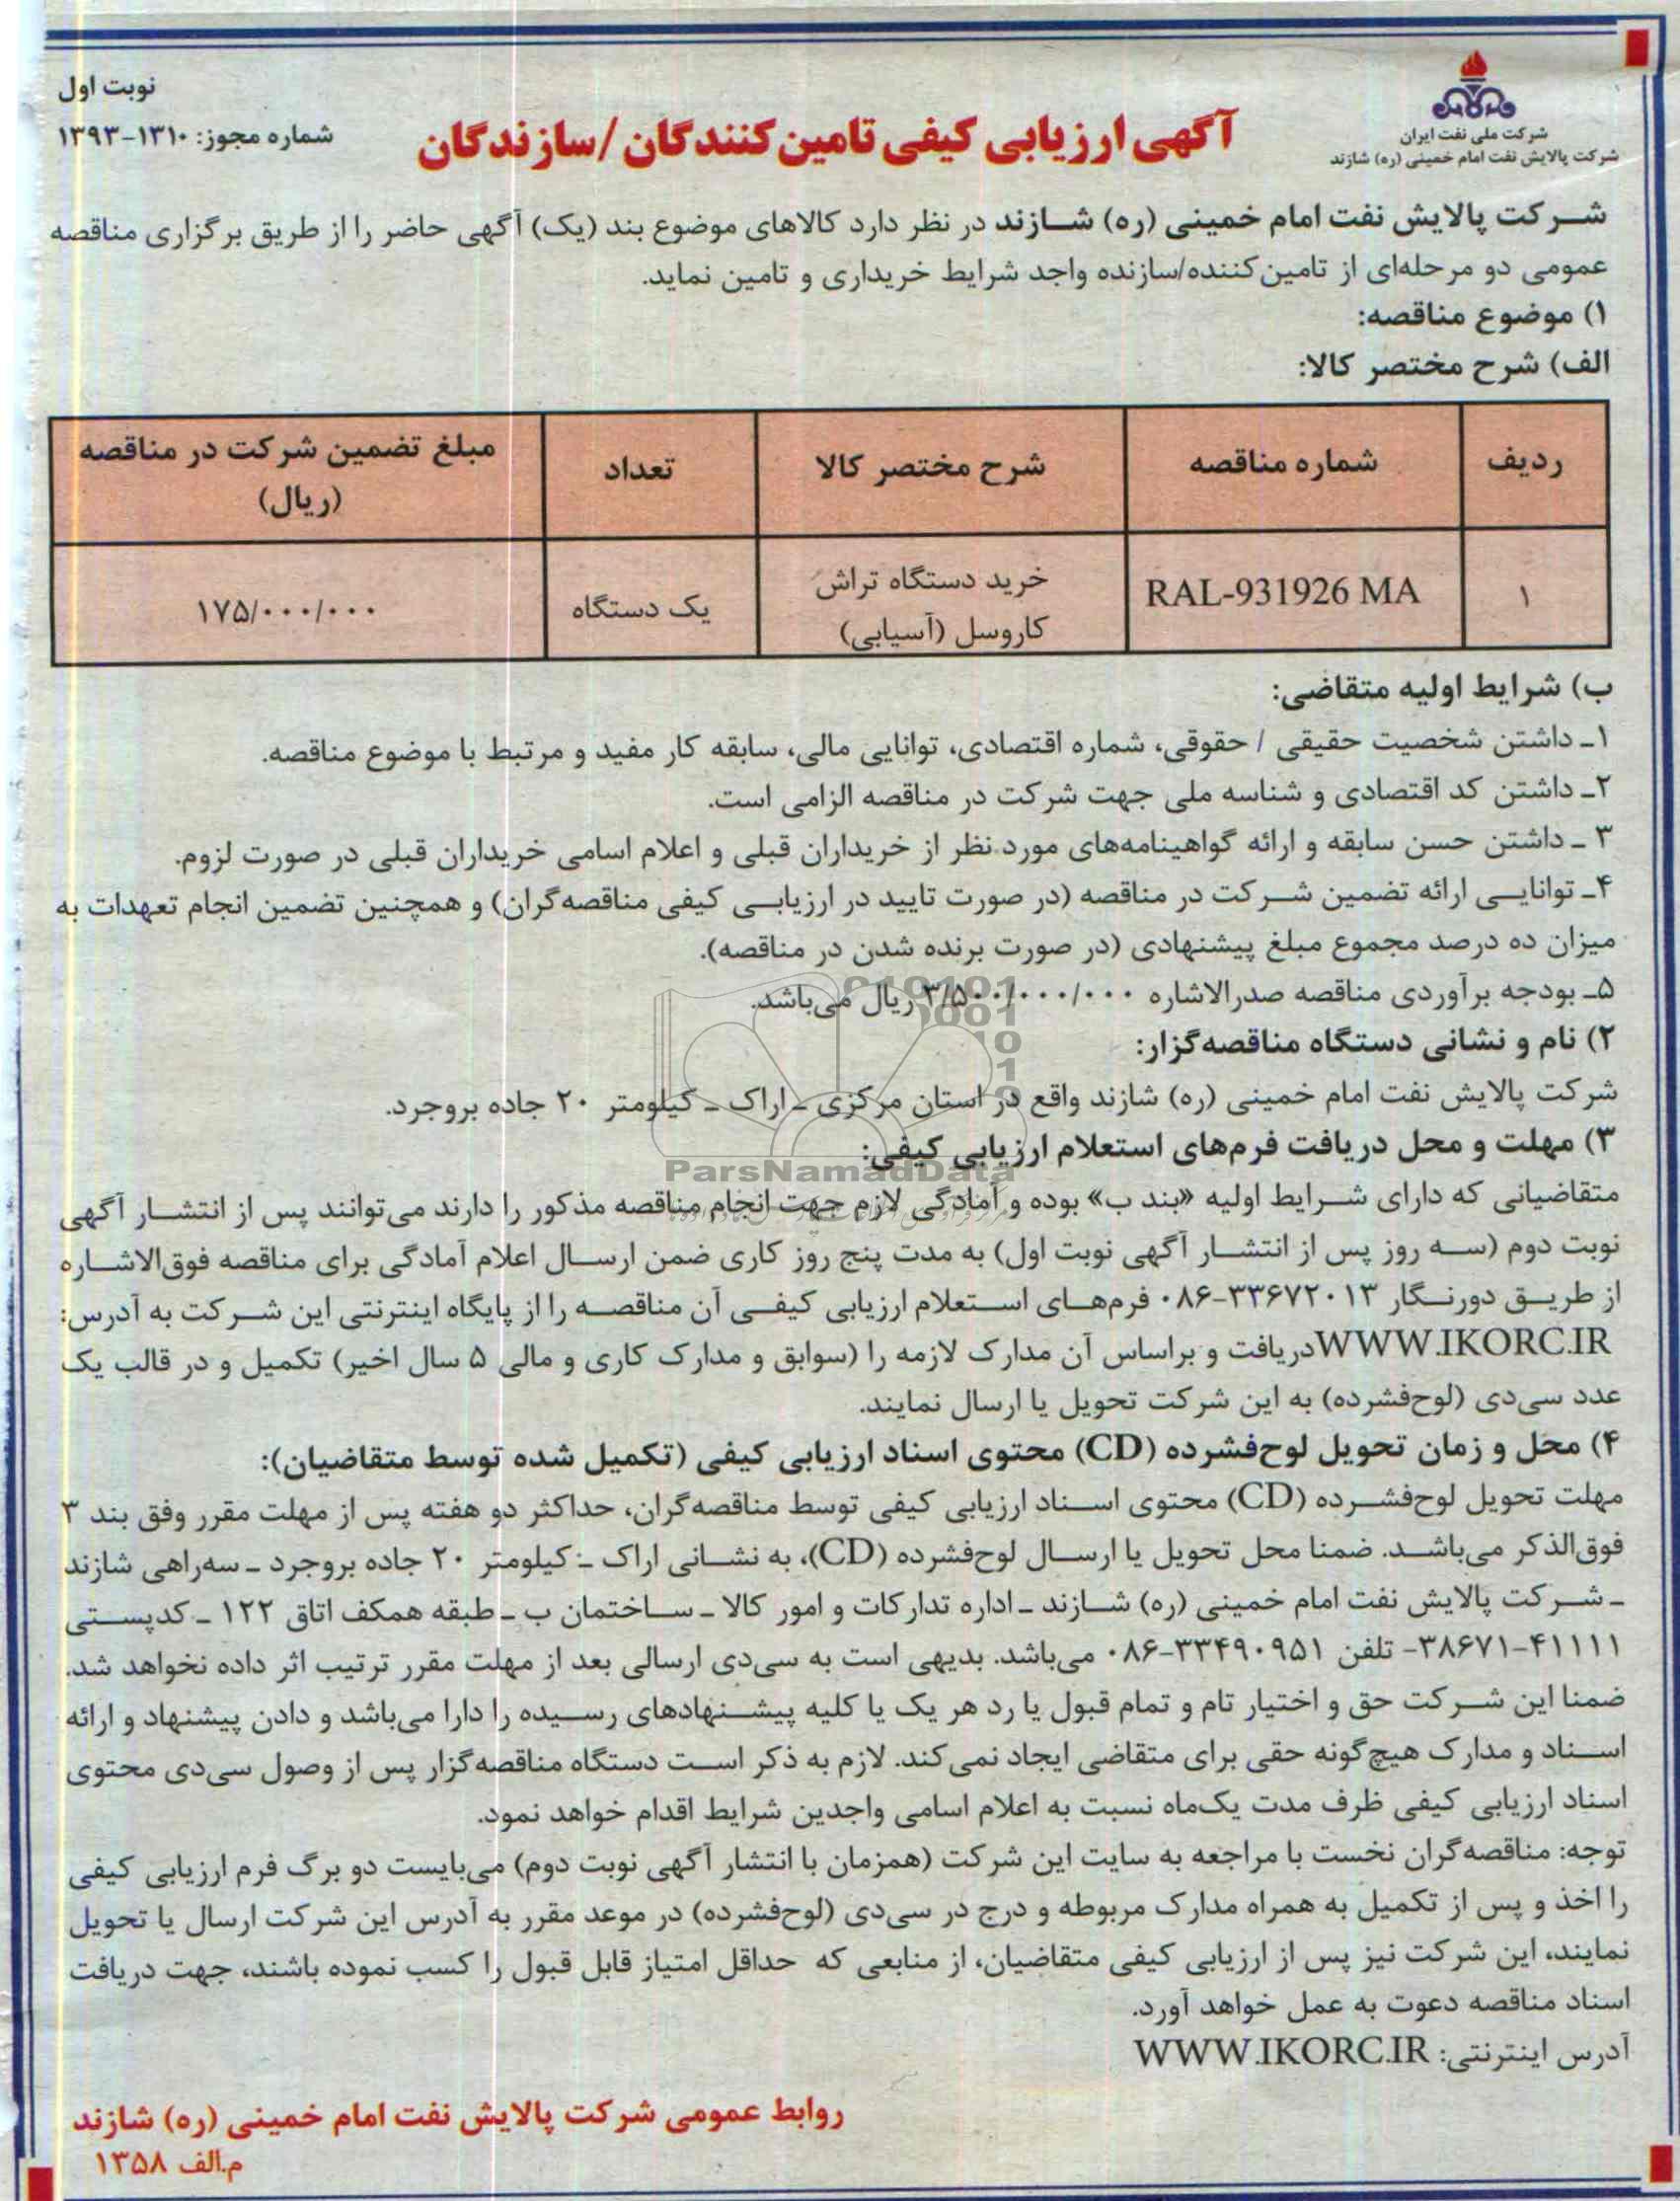 نوبت اول
شماره مجوز: ۱۳۱۰-۱۳۹۳
آگهی ارزیابی کیفی تامین‌کنندگان /سازندگان
شرکت ملی نفت ایران
شرکت پالایش نفت امام خمینی (ره) شازند
شرکت پالایش نفت امام خمینی (ره) شازند در نظر دارد کالاهای موضوع بند (یک) آگهی حاضر را از طریق برگزاری مناقصه
عمومی دو مرحله‌ای از تامین‌کننده/سازنده واجد شرایط خریداری و تامین نماید.
۱) موضوع مناقصه:
الف) شرح مختصر کالا:
ردیف شماره مناقصه شرح مختصر کالا تعداد مبلغ تضمین شرکت در مناقصه
(ریال)
۱ RAL-931926 MA خرید دستگاه تراش یک دستگاه ۱۷۵/۰۰۰/۰۰۰
کاروسل (آسیابی)
ب) شرایط اولیه متقاضی:
۱ـ داشتن شخصیت حقیقی / حقوقی، شماره اقتصادی، توانایی مالی، سابقه کار مفید و مرتبط با موضوع مناقصه.
۲ـ داشتن کد اقتصادی و شناسه ملی جهت شرکت در مناقصه الزامی است.
۳ ـ داشتن حسن سابقه و ارائه گواهینامه‌های مورد نظر از خریداران قبلی و اعلام اسامی خریداران قبلی در صورت لزوم.
۴ـ توانایی ارائه تضمین شرکت در مناقصه (در صورت تایید در ارزیابی کیفی مناقصه‌گران) و همچنین تضمین انجام تعهدات به
میزان ده درصد مجموع مبلغ پیشنهادی (در صورت برنده شدن در مناقصه).
۵ـ بودجه برآوردی مناقصه صدرالاشاره ۳/۵۰۰/۰۰۰/۰۰۰ ریال می‌باشد.
۲) نام و نشانی دستگاه مناقصه‌گزار:
شرکت پالایش نفت امام خمینی (ره) شازند واقع در استان مرکزی ـ اراک ـ کیلومتر ۲۰ جاده بروجرد.
۳) مهلت و محل دریافت فرم‌های استعلام ارزیابی کیفی:
ParsNamadData
متقاضیانی که دارای شرایط اولیه «بند ب» بوده و آمادگی لازم جهت انجام مناقصه مذکور را دارند می‌توانند پس از انتشار آگهی
نوبت دوم (سه روز پس از انتشار آگهی نوبت اول) به مدت پنج روز کاری ضمن ارسال اعلام آمادگی برای مناقصه فوق‌الاشاره
از طریق دورنگار ۳۳۶۷۲۰۱۳-۰۸۶ فرم‌های استعلام ارزیابی کیفی آن مناقصه را از پایگاه اینترنتی این شرکت به آدرس:
WWW.IKORC.IR دریافت و براساس آن مدارک لازمه را (سوابق و مدارک کاری و مالی ۵ سال اخیر) تکمیل و در قالب یک
عدد سی‌دی (لوح‌فشرده) به این شرکت تحویل یا ارسال نمایند.
۴) محل و زمان تحویل لوح‌فشرده (CD) محتوی اسناد ارزیابی کیفی (تکمیل شده توسط متقاضیان):
مهلت تحویل لوح‌فشرده (CD) محتوی اسناد ارزیابی کیفی توسط مناقصه‌گران، حداکثر دو هفته پس از مهلت مقرر وفق بند ۳
فوق‌الذکر می‌باشد. ضمنا محل تحویل یا ارسال لوح‌فشرده (CD)، به نشانی اراک ـ کیلومتر ۲۰ جاده بروجرد ـ سه‌راهی شازند
ـ شرکت پالایش نفت امام خمینی (ره) شازند ـ اداره تدارکات و امور کالا ـ ساختمان ب ـ طبقه همکف اتاق ۱۲۲ ـ کدپستی
۴۱۱۱۱-۳۸۶۷۱- تلفن ۳۳۴۹۰۹۵۱-۰۸۶ می‌باشد. بدیهی است به سی‌دی ارسالی بعد از مهلت مقرر ترتیب اثر داده نخواهد شد.
ضمنا این شرکت حق و اختیار تام و تمام قبول یا رد هر یک یا کلیه پیشنهادهای رسیده را دارا می‌باشد و دادن پیشنهاد و ارائه
اسناد و مدارک هیچ‌گونه حقی برای متقاضی ایجاد نمی‌کند. لازم به ذکر است دستگاه مناقصه‌گزار پس از وصول سی‌دی محتوی
اسناد ارزیابی کیفی ظرف مدت یک‌ماه نسبت به اعلام اسامی واجدین شرایط اقدام خواهد نمود.
توجه: مناقصه‌گران نخست با مراجعه به سایت این شرکت (همزمان با انتشار آگهی نوبت دوم) می‌بایست دو برگ فرم ارزیابی کیفی
را اخذ و پس از تکمیل به همراه مدارک مربوطه و درج در سی‌دی (لوح‌فشرده) در موعد مقرر به آدرس این شرکت ارسال یا تحویل
نمایند، این شرکت نیز پس از ارزیابی کیفی متقاضیان، از منابعی که حداقل امتیاز قابل قبول را کسب نموده باشند، جهت دریافت
اسناد مناقصه دعوت به عمل خواهد آورد.
آدرس اینترنتی: WWW.IKORC.IR
روابط عمومی شرکت پالایش نفت امام خمینی (ره) شازند
م.الف ۱۳۵۸